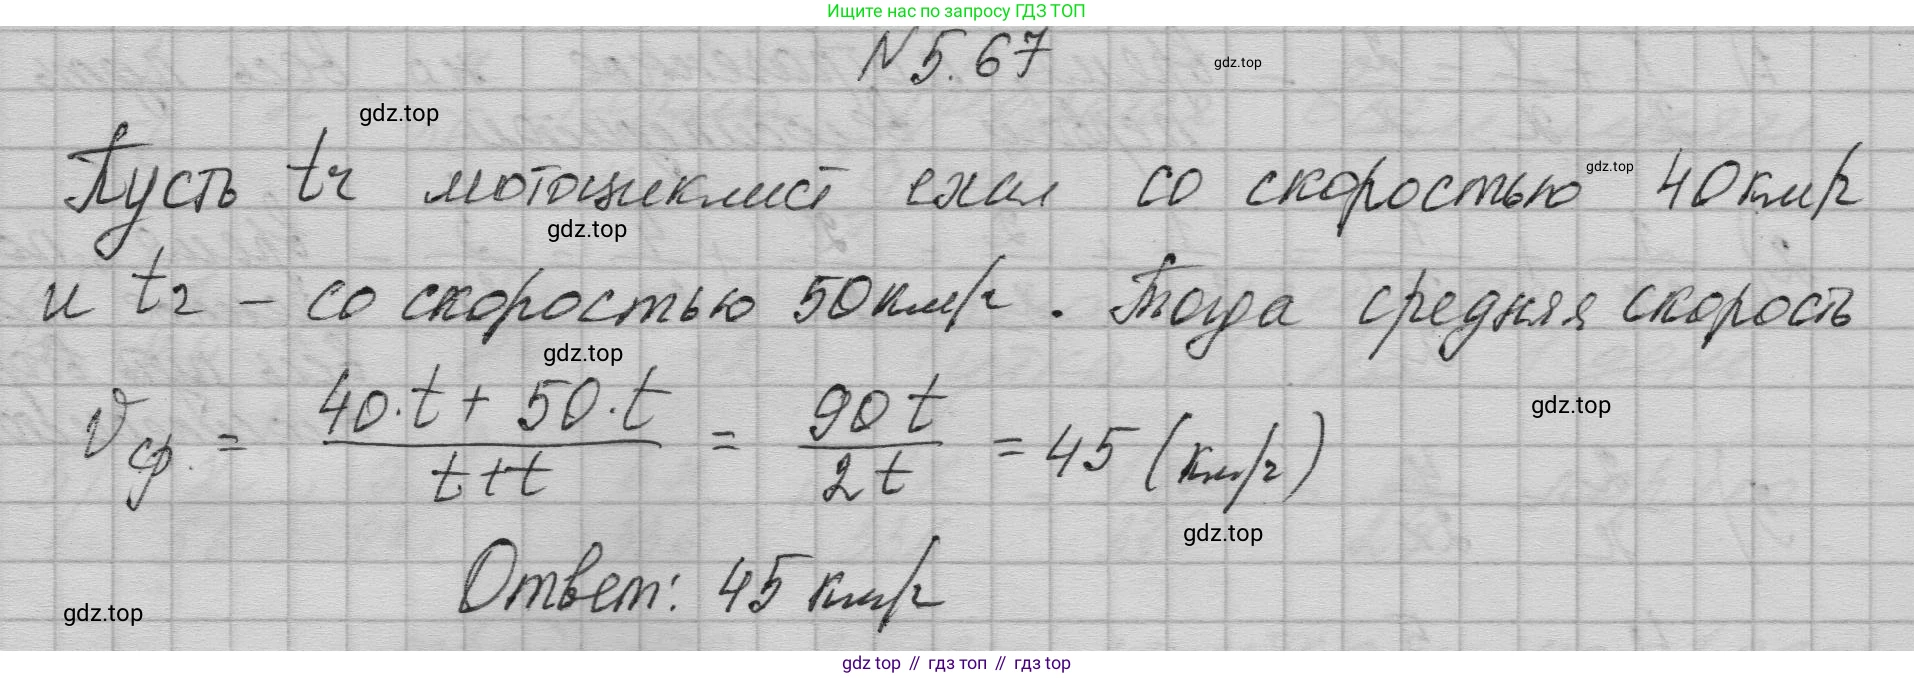 Ищите нас по запросу ГДЗ ТОП
N 5.67
gdz.top
gdz.top
Пусть t ч мотоциклист ехал со скоростью 40 км/ч
gdz.top
gdz.top
и t ч – со скоростью 50 км/ч. Тогда средняя скорость
gdz.top
vср. = (40·t + 50·t)/(t+t) = 90t/2t = 45 (км/ч)
gdz.top
gdz.top
Ответ: 45 км/ч
gdz.top
gdz top // гдз топ // гдз top